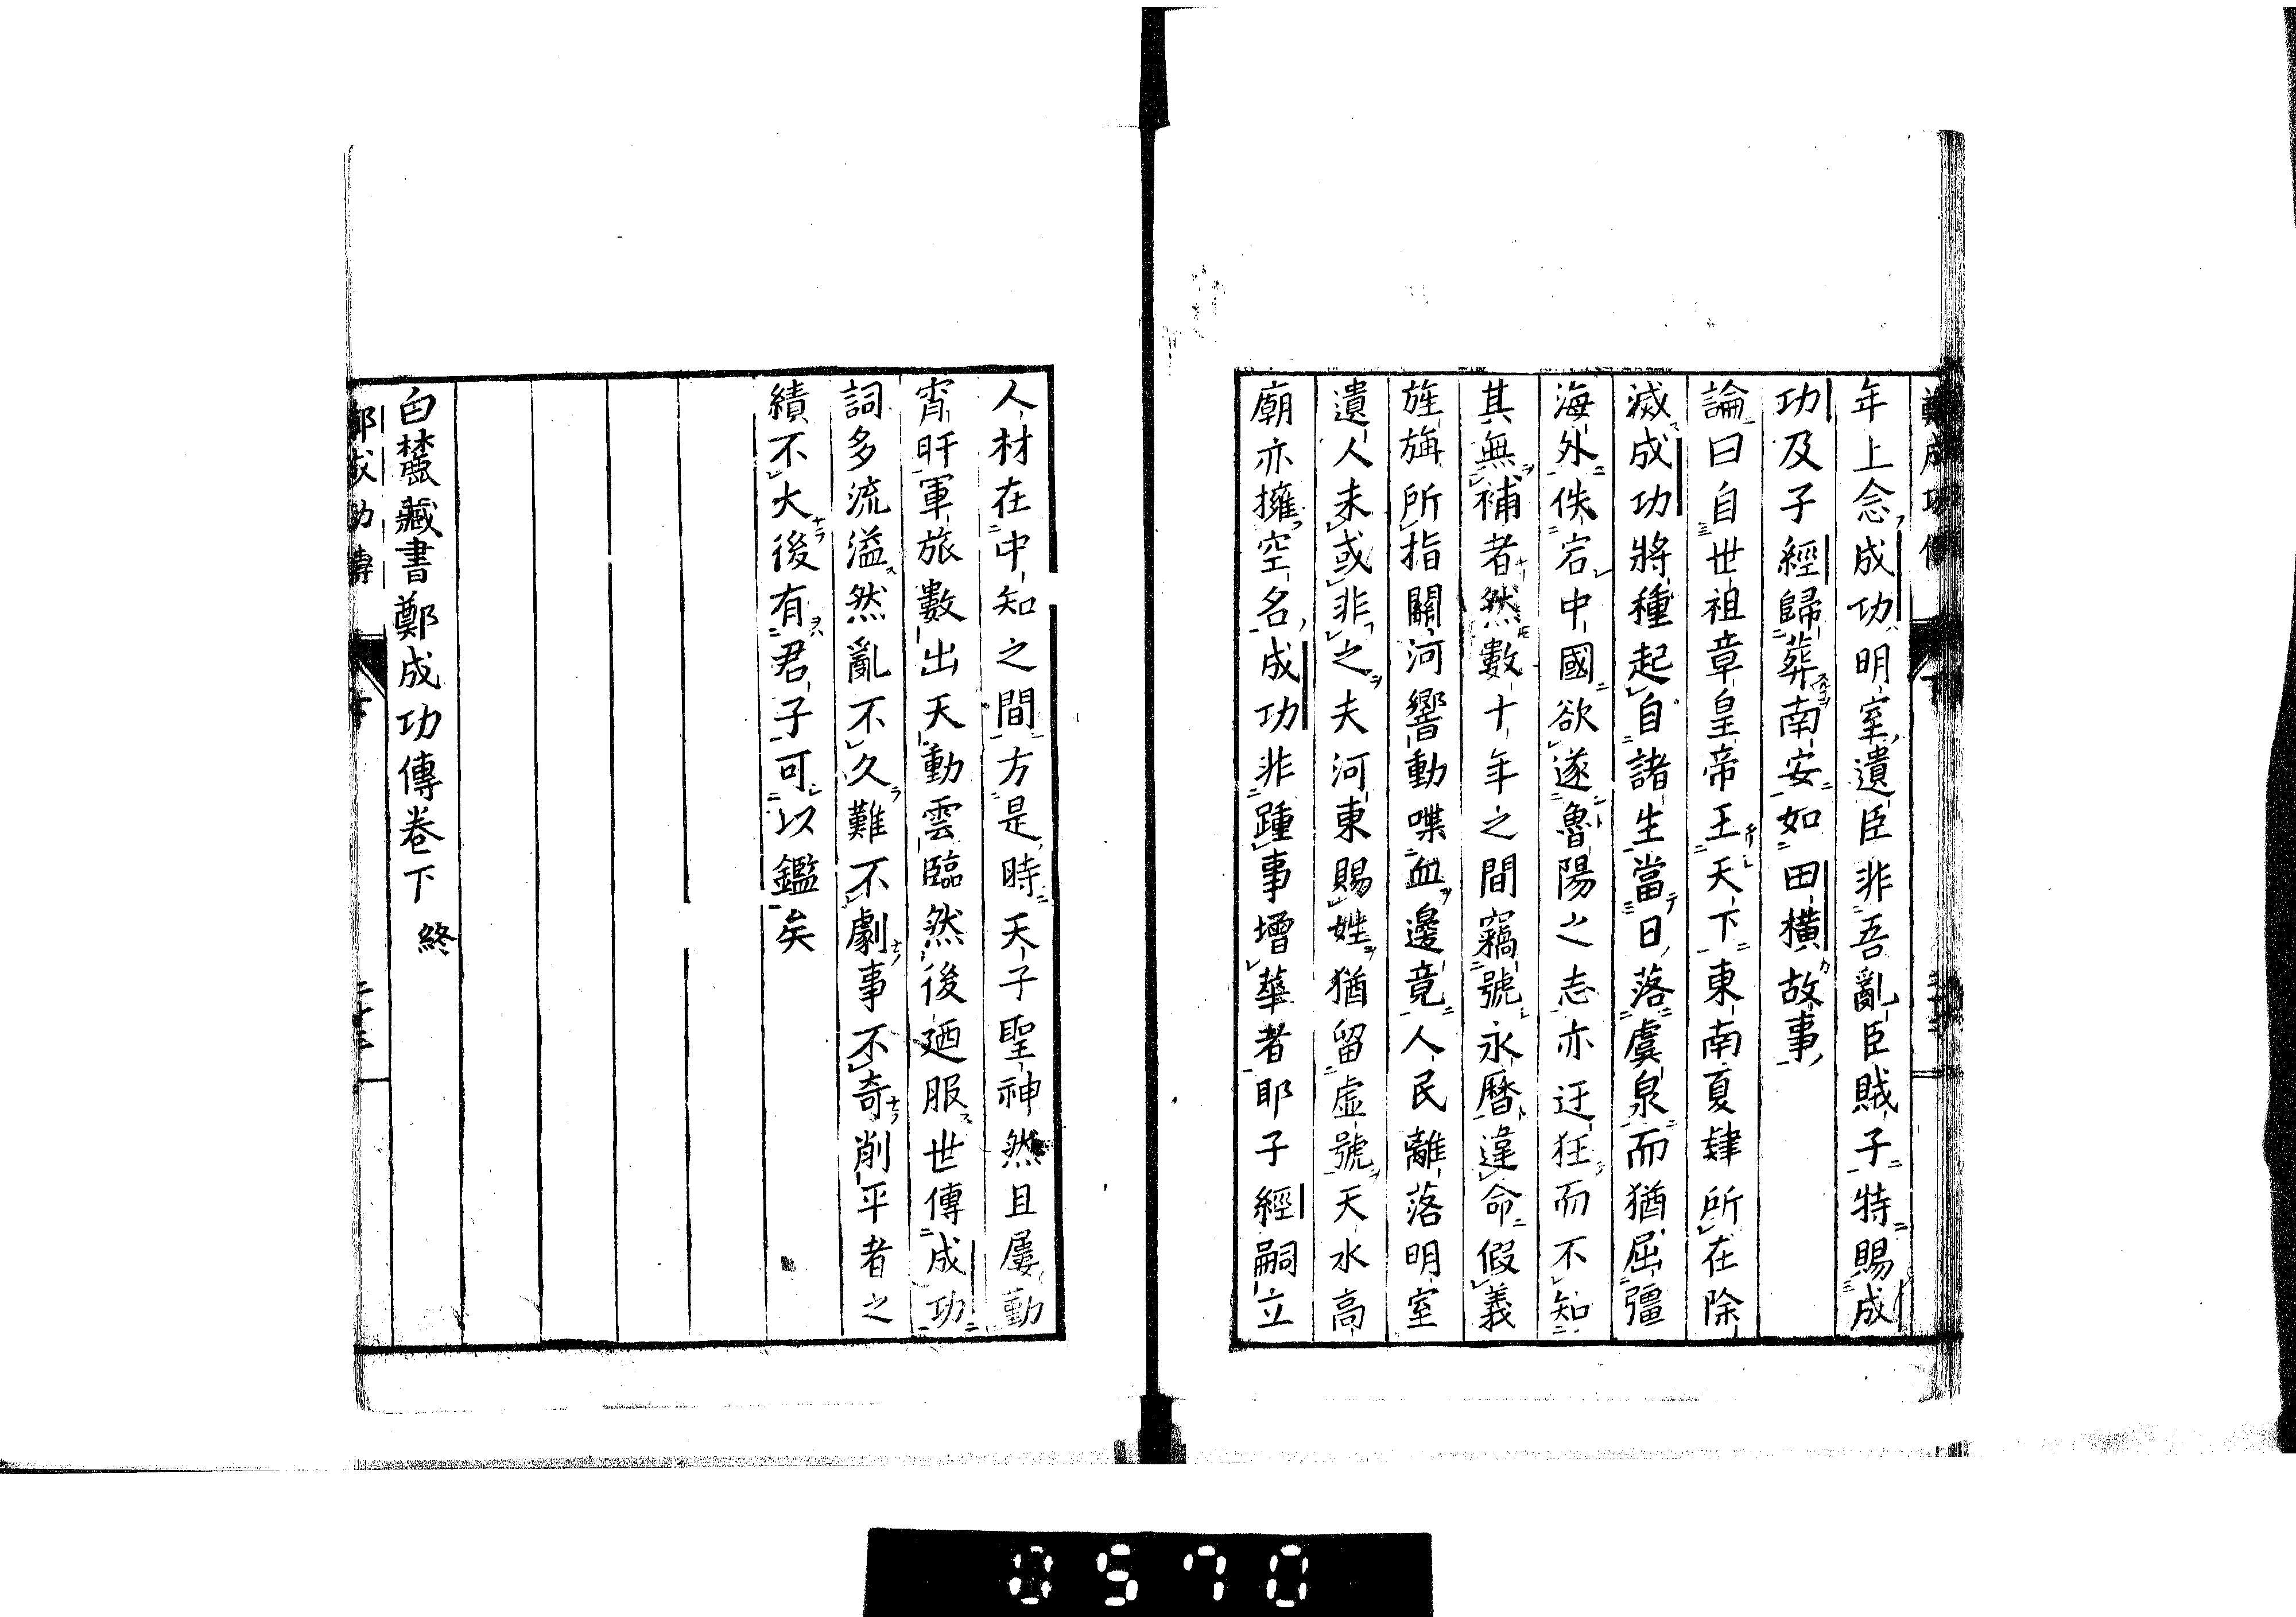 年上念成功明室遺臣非吾亂臣賊子特賜成
功及子經歸葬南安如田橫故事
論曰自世祖章皇帝王天下東南夏肆所在除
滅成功將種起自諸生當日落虞泉而猶屈彊
海外佚宕中國欲遂魯陽之志亦迂狂而不知
其無補者然數十年之間竊號永曆違命假義
旌旃所指關河響動喋血邊竟人民離落明室
遺人未或非之夫河東賜姓猶留虛號天水高
廟亦擁空名成功非踵事增華者耶子經嗣立
人材在中知之間方是時天子聖神然且屢動
宵旰軍旅數出天動雲臨然後廼服世傳成功
詞多流溢然亂不久難不劇事不奇削平者之
績不大後有君子可以鑑矣
白麓藏書鄭成功傳卷下 終
鄭成功傳 下
0570